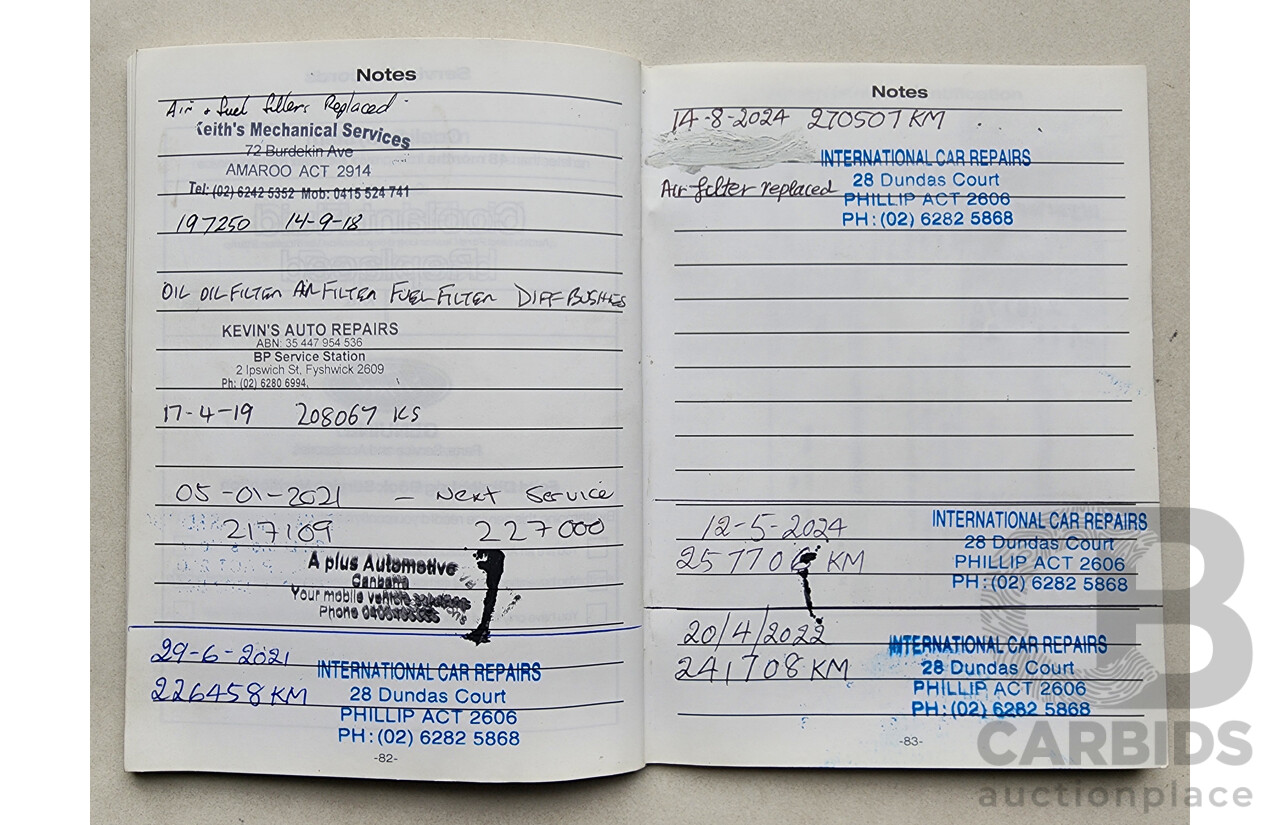 Notes
Air + fuel filters Replaced
Keith's Mechanical Services
72 Burdekin Ave
AMAROO ACT 2914
Tel: (02) 6242 5352 Mob: 0415 524 741
197250 14-9-18
OIL OIL FILTER AIR FILTER FUEL FILTER DIFF BUSHES
KEVIN'S AUTO REPAIRS
ABN: 35 447 954 536
BP Service Station
2 Ipswich St, Fyshwick 2609
Ph: (02) 6280 6994,
17-4-19 208067 KS
05-01-2021 - Next Service
217109 227000
A plus Automotive
Canberra
Your mobile vehicle
Phone
29-6-2021
226458 KM
INTERNATIONAL CAR REPAIRS
28 Dundas Court
PHILLIP ACT 2606
PH: (02) 6282 5868
-82-
Notes
14-8-2024 270507 KM
INTERNATIONAL CAR REPAIRS
28 Dundas Court
Air filter replaced
PHILLIP ACT 2606
PH: (02) 6282 5868
12-5-2024
257706 KM
INTERNATIONAL CAR REPAIRS
28 Dundas Court
PHILLIP ACT 2606
PH: (02) 6282 5868
20/4/2022
241708 KM
INTERNATIONAL CAR REPAIRS
28 Dundas Court
PHILLIP ACT 2606
PH: (02) 6282 5868
-83-
CARBIDS
auctionplace